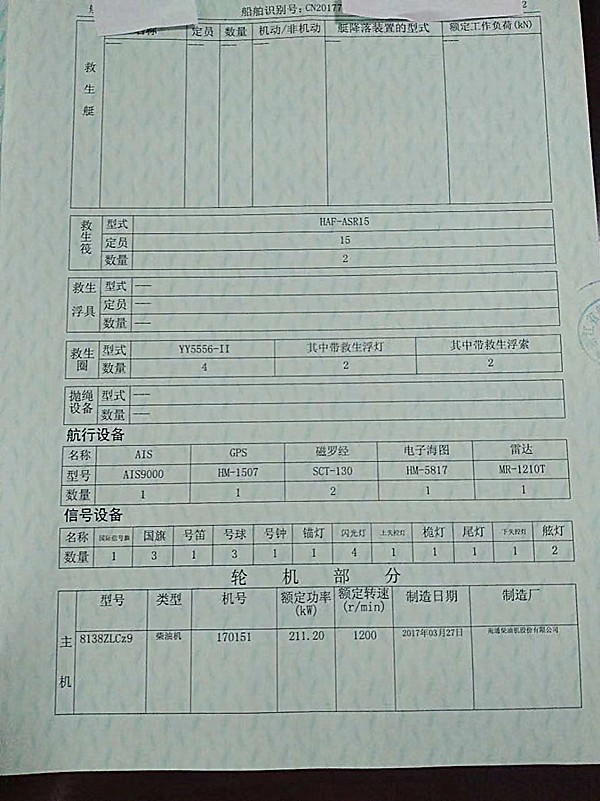 船舶识别号：CN20177
2
定员 数量 机动/非机动 艇降落装置的型式 额定工作负荷(kN)
救生艇
救生筏 型式 HAF-ASR15
定员 15
数量 2
救生浮具 型式 ——
定员 ——
数量 ——
救生圈 型式 YY5556-II 其中带救生浮灯 其中带救生浮索
数量 4 2 2
抛绳设备 型式 ——
数量 ——
航行设备
名称 AIS GPS 磁罗经 电子海图 雷达
型号 AIS9000 HM-1507 SCT-130 HM-5817 MR-1210T
数量 1 1 2 1 1
信号设备
名称 国际信号旗 国旗 号笛 号球 号钟 锚灯 闪光灯 上失控灯 桅灯 尾灯 下失控灯 舷灯
数量 1 3 1 3 1 1 4 1 1 1 1 2
轮机部分
型号 类型 机号 额定功率(kW) 额定转速(r/min) 制造日期 制造厂
主机 8138ZLCz9 柴油机 170151 211.20 1200 2017年03月27日 南通柴油机股份有限公司